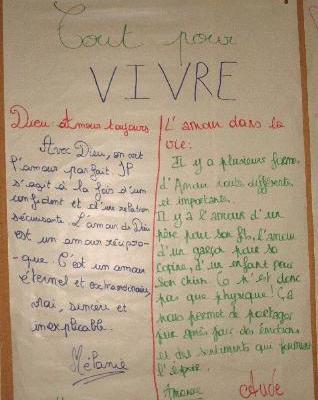 Tout pour
VIVRE
Dieu Amour toujours
Avec Dieu, on vit
l'amour parfait. Il
s'agit à la fois d'un
confident et d'une relation
sécurisante. L'amour de Dieu
est un amour récipro-
que. C'est un amour
éternel et extraordinaire,
vrai, sincère et
inexplicable.
Mélanie
L'amour dans la
vie:
Il y a plusieurs forme
d'Amour touts différents
et importants.
Il y a l'amour d'un
père pour son fils, l'amour
d'un garçon pour sa
copine, d'un enfant pour
son chien. Ça n'est donc
pas que physique! Ça
nous permet de partager
des émotions
et des sentiments qui
Amance Aude